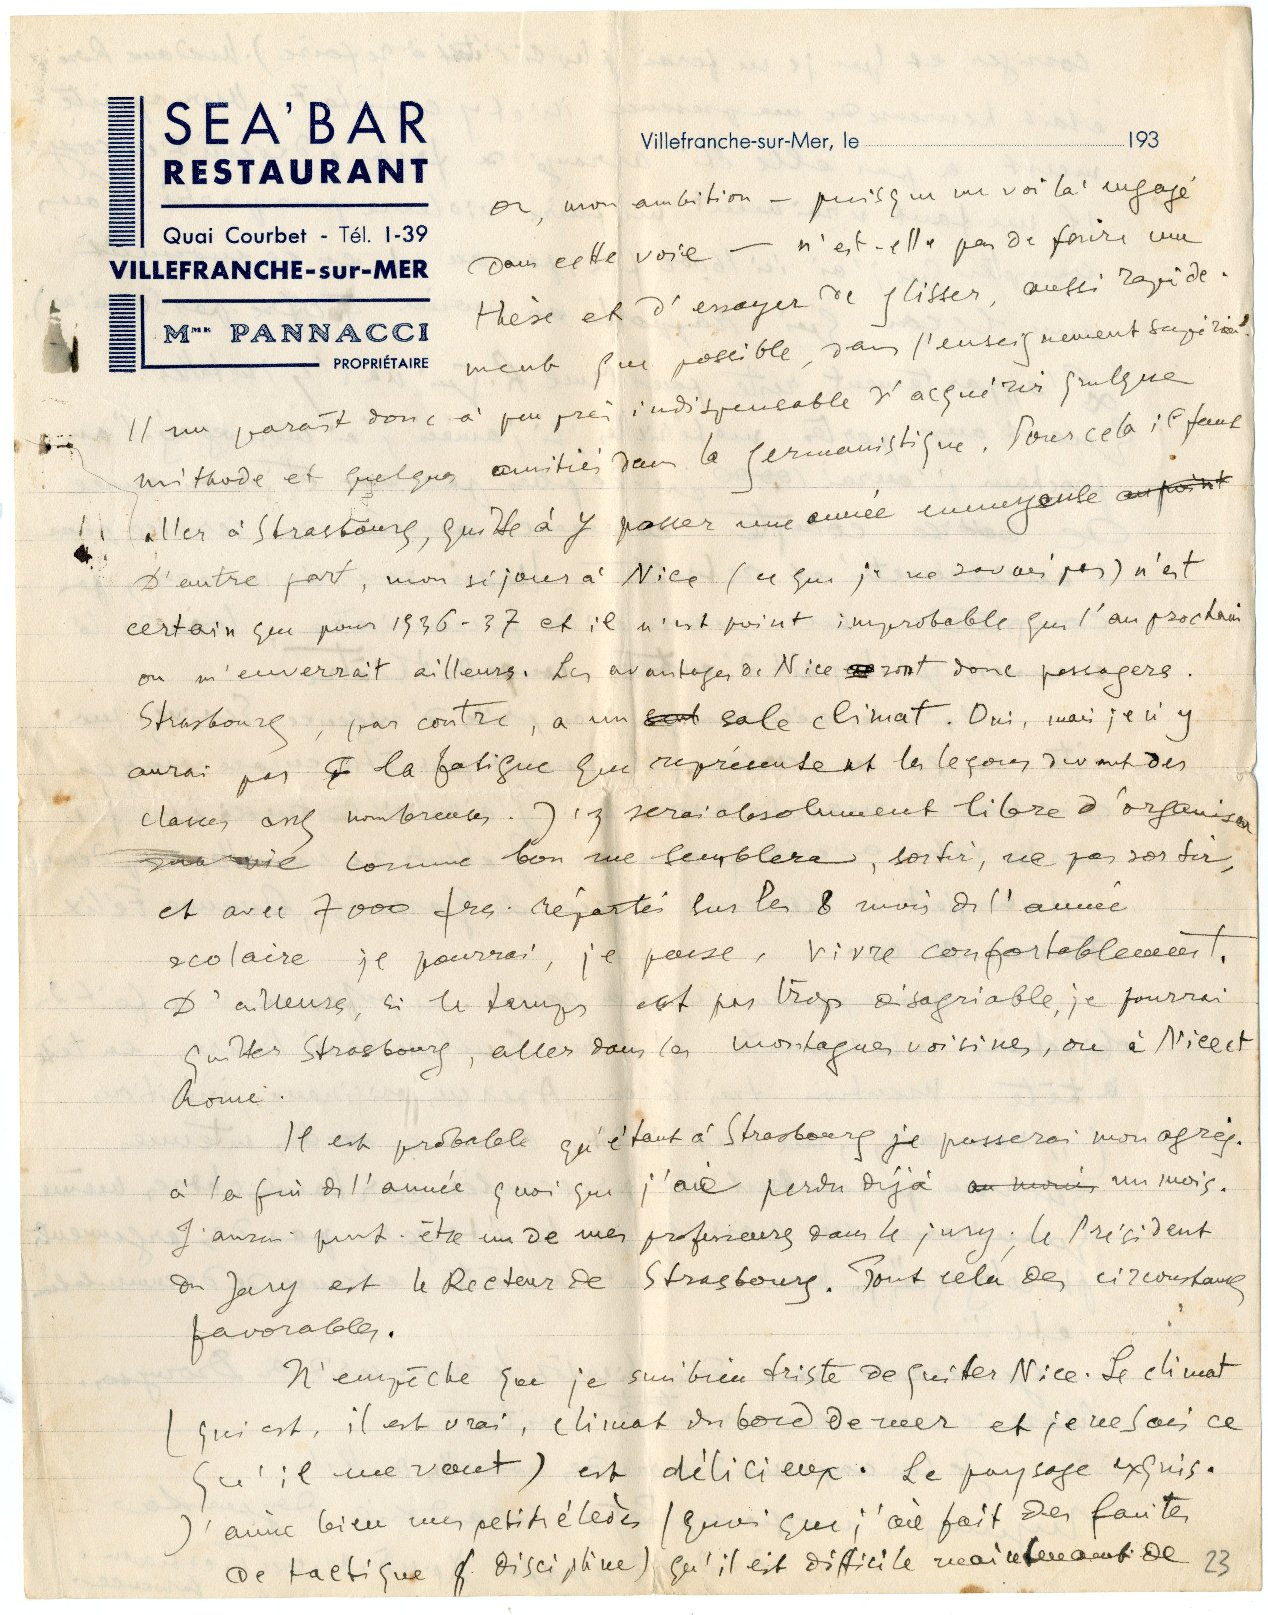 SEA'BAR
RESTAURANT
Quai Courbet - Tél. 1-39
VILLEFRANCHE-sur-MER
Mme PANNACCI
PROPRIÉTAIRE
Villefranche-sur-Mer, le 193
or, mon ambition — puisque me voilà engagé
dans cette voie — n'est-elle pas de faire une
thèse et d'essayer de glisser, aussi rapide-
ment que possible, dans l'enseignement supérieur.
Il me paraît donc à peu près indispensable d'acquérir quelque
méthode et quelques amitiés dans la germanistique. Pour cela il faut
aller à Strasbourg, quitte à y passer une année ennuyeuse au point
D'autre part, mon séjour à Nice (ce que je ne savais pas) n'est
certain que pour 1936-37 et il n'est point improbable que l'an prochain
on m'enverrait ailleurs. Les avantages de Nice sont donc passagers.
Strasbourg, par contre, a un sale climat. Oui, mais je n'y
aurai pas la fatigue que représentent les leçons devant des
classes assez nombreuses. J'y serai absolument libre d'organiser
ma vie comme bon me semblera, sortir, ne pas sortir,
et avec 7000 frs. répartis sur les 8 mois de l'année
scolaire je pourrai, je pense, vivre confortablement.
D'ailleurs, si le temps est pas trop désagréable, je pourrai
quitter Strasbourg, aller dans les montagnes voisines, ou à Nice et
Rome.
Il est probable qu'étant à Strasbourg je passerai mon agrég.
à la fin de l'année quoi que j'aie perdu déjà au moins un mois.
J'aurai peut-être un de mes professeurs dans le jury; le Président
du Jury est le Recteur de Strasbourg. Tout cela des circonstances
favorables.
N'empêche que je suis bien triste de quitter Nice. Le climat
(qui est, il est vrai, climat du bord de mer et je ne sais ce
qu'il me vaut) est délicieux. Le paysage exquis.
J'aime bien mes petits élèves (quoi que j'aie fait des fautes
de tactique discipline) qu'il est difficile maintenant de
23